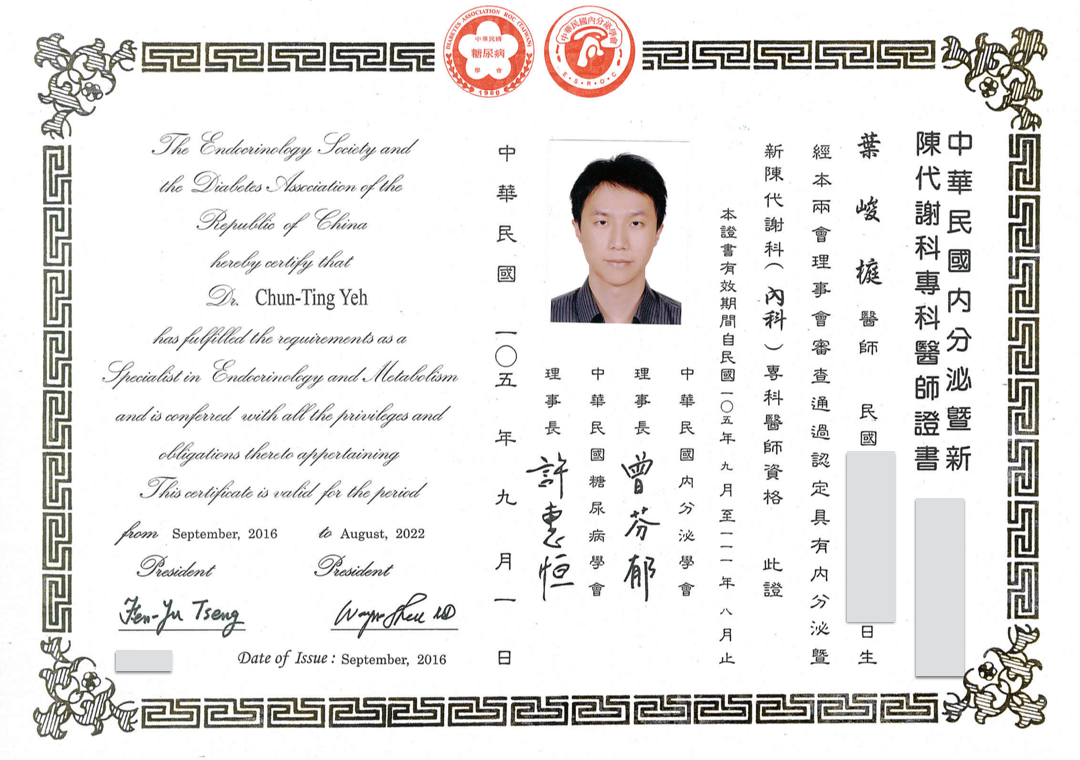 DIABETES ASSOCIATION ROC (TAIWAN)
中華民國
糖尿病
學會
1980
中華民國內分泌學會
E·S·R·O·C
中華民國內分泌暨新
陳代謝科專科醫師證書
葉峻榳醫師 民國
日生
經本兩會理事會審查通過認定具有內分泌暨
新陳代謝科(內科)專科醫師資格 此證
本證書有效期間自民國一〇五年九月至一一一年八月止
中華民國內分泌學會
理事長 曾芬郁
中華民國糖尿病學會
理事長 許惠恒
中華民國一〇五年九月一日
The Endocrinology Society and
the Diabetes Association of the
Republic of China
hereby certify that
Dr. Chun-Ting Yeh
has fulfilled the requirements as a
Specialist in Endocrinology and Metabolism
and is conferred with all the privileges and
obligations thereto appertaining
This certificate is valid for the period
from September, 2016 to August, 2022
President President
Fen-Yu Tseng Wayne Sheu MD
Date of Issue : September, 2016